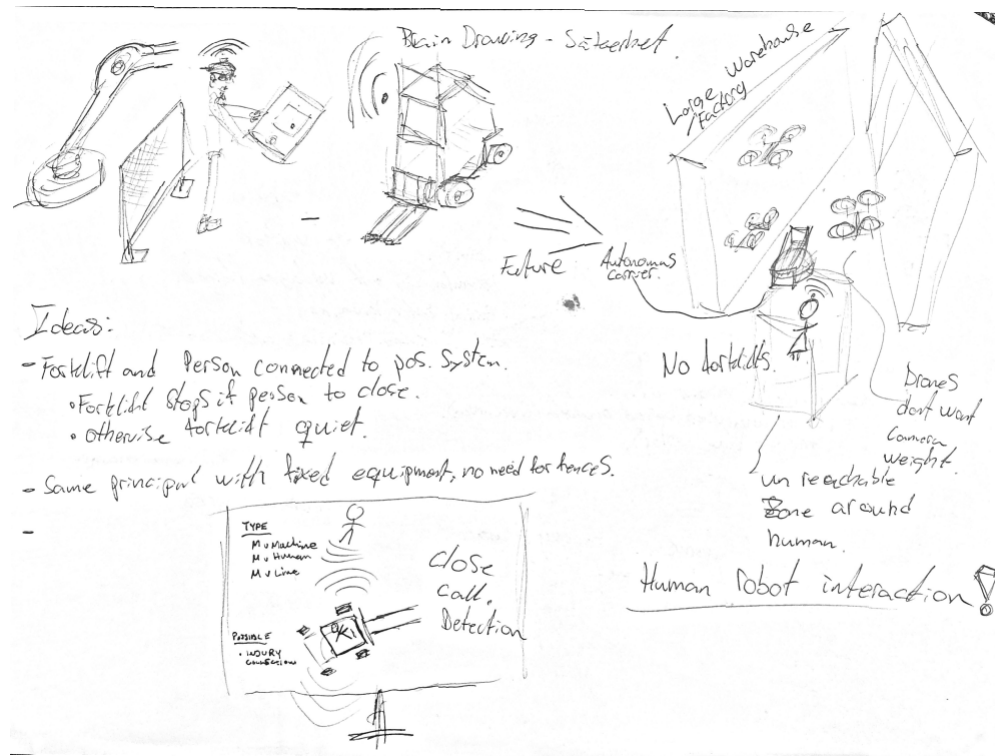 Brain Drawing - Säkerhet.
Large Warehouse
/Factory
Future
Autonomous
carrier.
Ideas:
- Forklift and Person connected to pos. system.
• Forklift stops if person to close.
• otherwise forklift quiet.
- Same principal with fixed equipment, no need for fences.
-
No forklifts.
Drones
dont want
Camera
weight.
un reachable
Zone around
human.
Human robot interaction!
TYPE
M v Machine
M v Human
M v Line
Close
call.
Detection
POSSIBLE
• INJURY